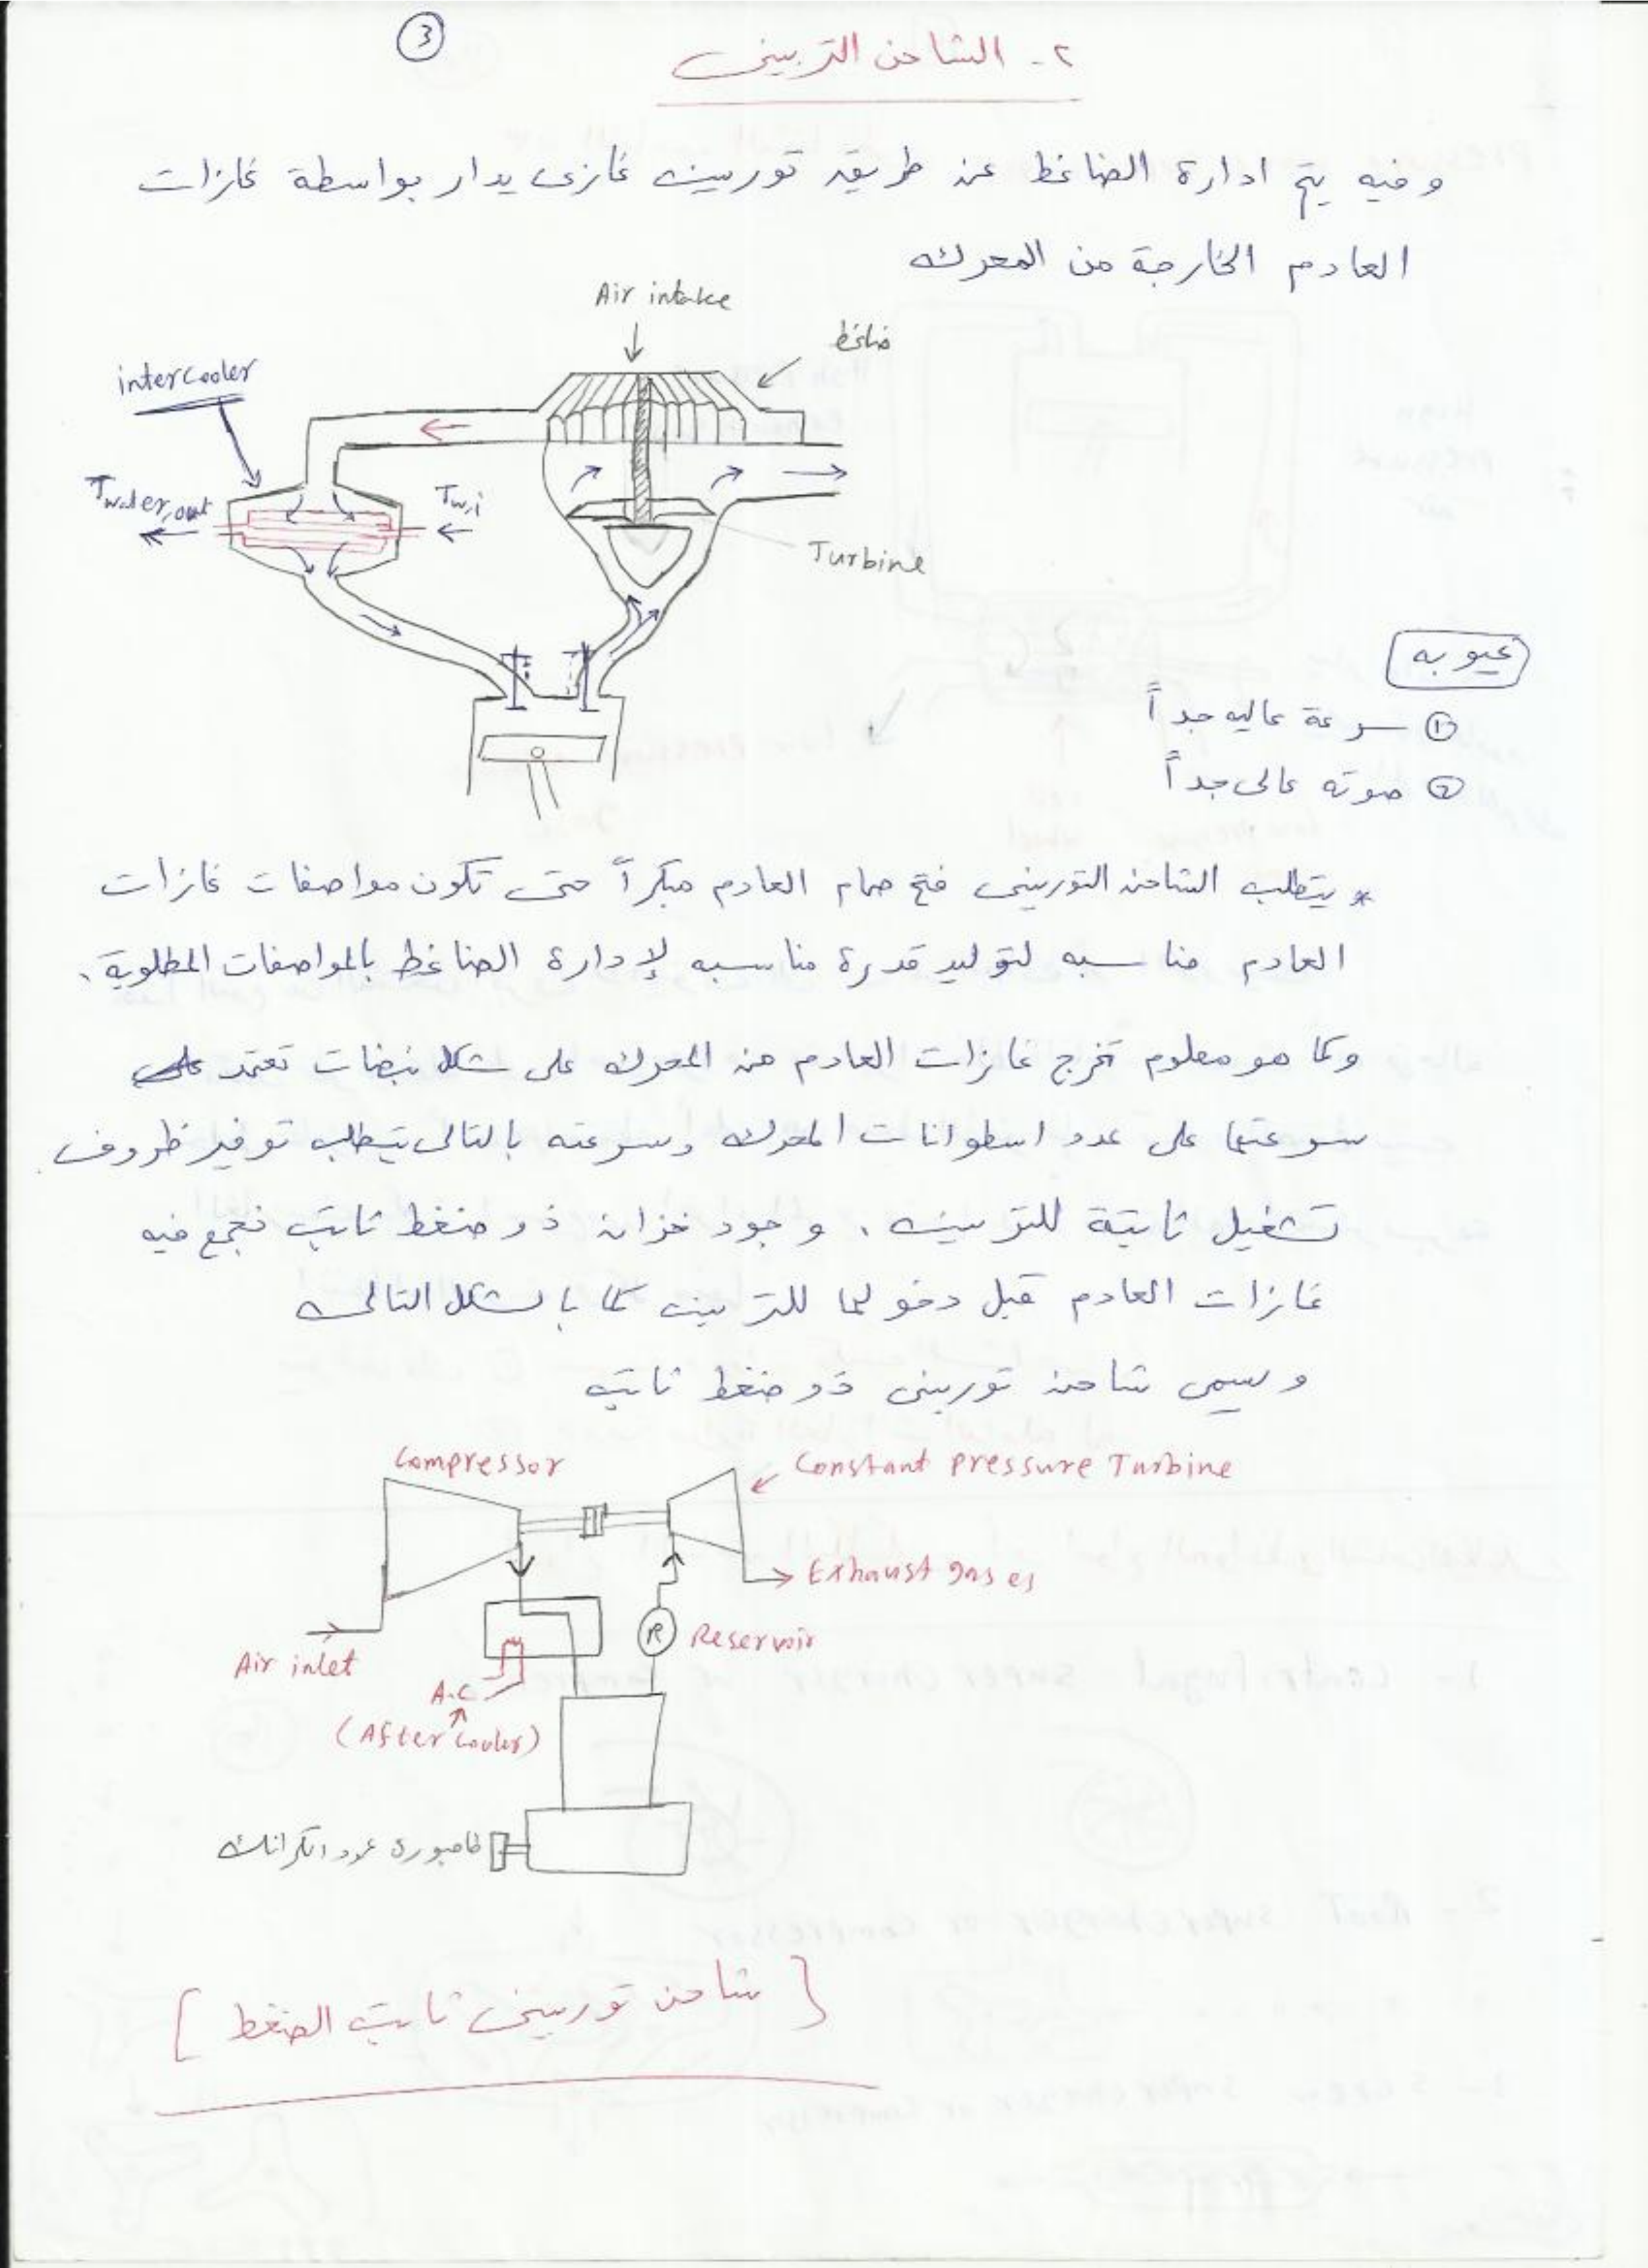 3
٢- الشاحن التربينى
وفيه يتم ادارة الضاغط عن طريق توربين غازى يدار بواسطة غازات
العادم الخارجة من المحرك
Air intake
ضاغط
intercooler
Twater,out
Tw,i
Turbine
عيوبه
① سرعة عاليه جداً
② صوته عالى جداً
* يتطلب الشاحن التوربينى فتح صمام العادم مبكراً حتى تكون مواصفات غازات
العادم مناسبه لتوليد قدرة مناسبه لإدارة الضاغط بالمواصفات المطلوبة.
وكما هو معلوم تخرج غازات العادم من المحرك على شكل نبضات تعتمد
سرعتها على عدد اسطوانات المحرك وسرعته بالتالى يتطلب توفير ظروف
تشغيل ثابتة للتربين، وجود خزان ذو ضغط ثابت تجمع فيه
غازات العادم قبل دخولها للتربين كما بالشكل التالى
ويسمى شاحن توربينى ذو ضغط ثابت
Compressor
Constant Pressure Turbine
Exhaust gases
R
Reservoir
Air inlet
A.C
(After Cooler)
طامبورة عمود الكرانك
[شاحن توربينى ثابت الضغط]